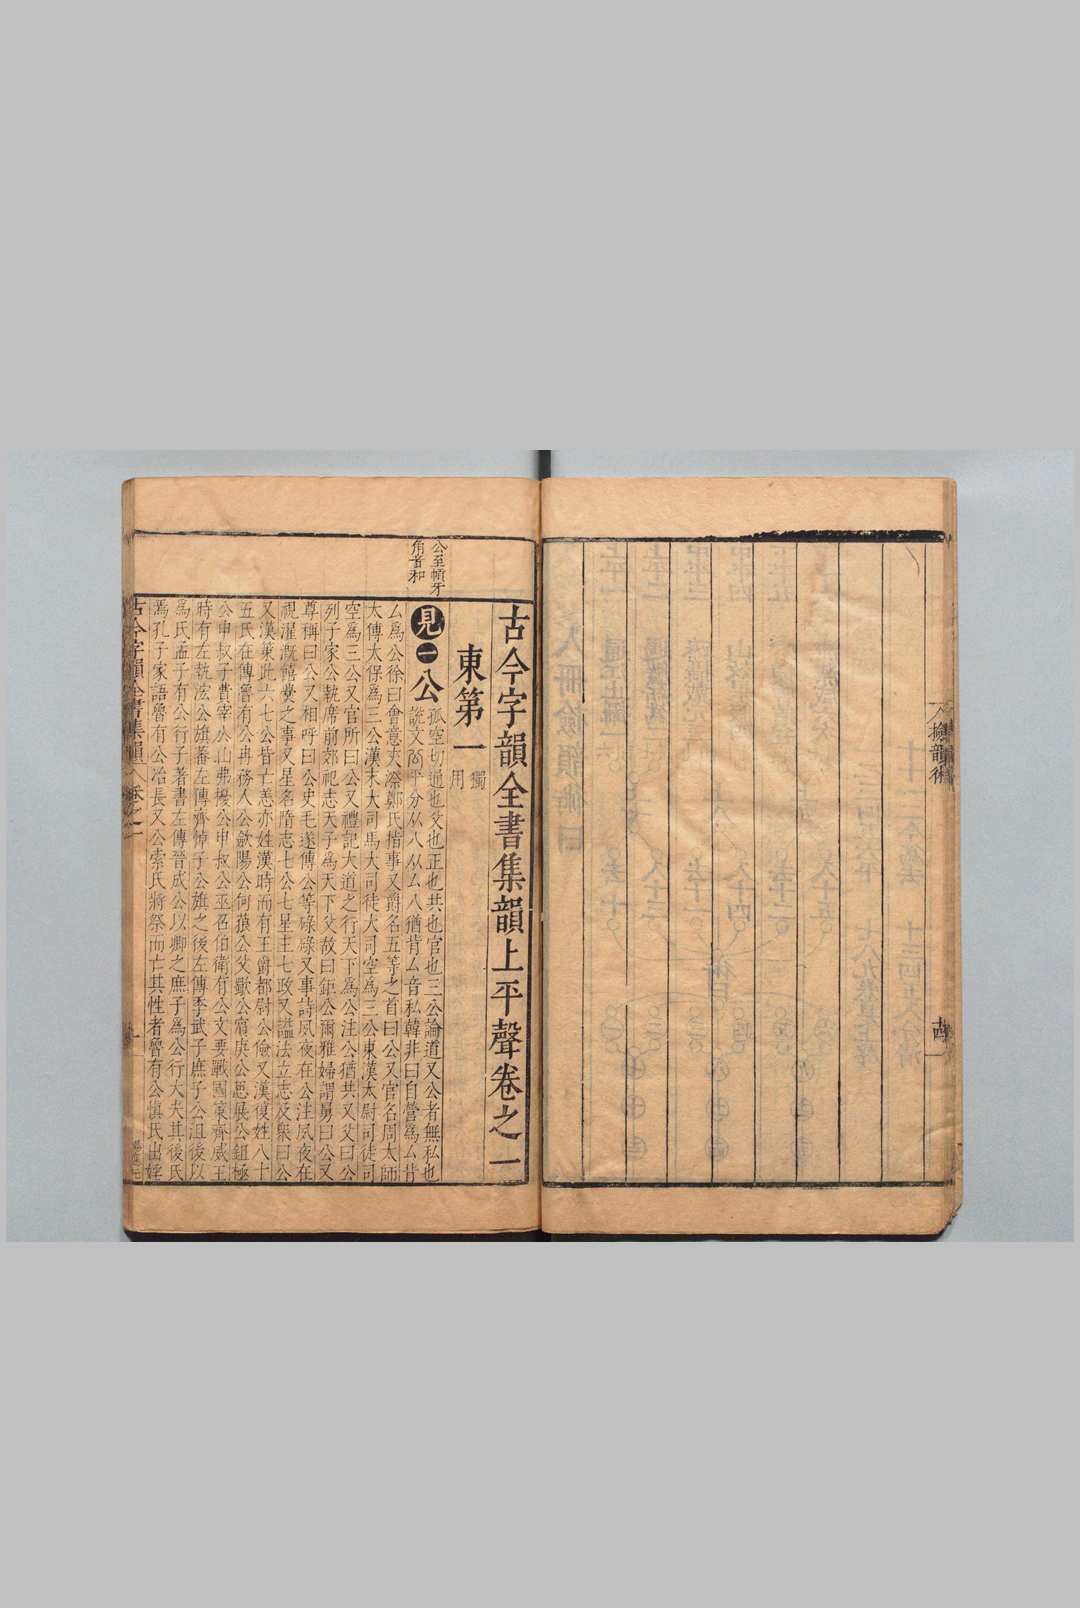 入檢韻術
古今字韻全書集韻上平聲卷之一
東第一
獨用
公至幀牙
角音和
見一公
孤空切通也父也正也共也官也三公論道又公者無私也
說文公平分从八从厶八猶背厶音私韓非曰自營爲厶背
厶爲公徐曰會意夾漈鄭氏指事又爵名五等之首曰公又官名周太師
太傅太保爲三公漢末大司馬大司徒大司空爲三公東漢太尉司徒司
空爲三公又官所曰公又禮記大道之行天下爲公注公猶共又父曰公
列子家公執席前郊祀志天子爲天下父故曰鉅公爾雅婦謂舅曰公又
尊稱曰公又相呼曰公史毛遂傳公等碌碌又事詩夙夜在公注夙夜在
視濯溉饎爨之事又星名隋志七公七星主七政又謚法立志及衆曰公
又漢策此六七公皆亡恙亦姓漢時而有王爵都尉公儉又漢復姓八十
五氏左傳魯有公冉務人公歛陽公何藐公父歜公賓庚公思展公鉏極
公申叔子費宰公山弗擾公申叔公巫召伯衛有公文要戰國策齊威王
時有左執法公旗蕃左傳齊悼子公旗之後左傳季武子庶子公沮後以
爲氏孟子有公行子著書左傳晉成公以卿之庶子爲公行大夫其後氏
焉孔子家語魯有公冶長又公索氏將祭而亡其牲者魯有公慎氏出婬
古今字韻全書集韻 卷之一
一